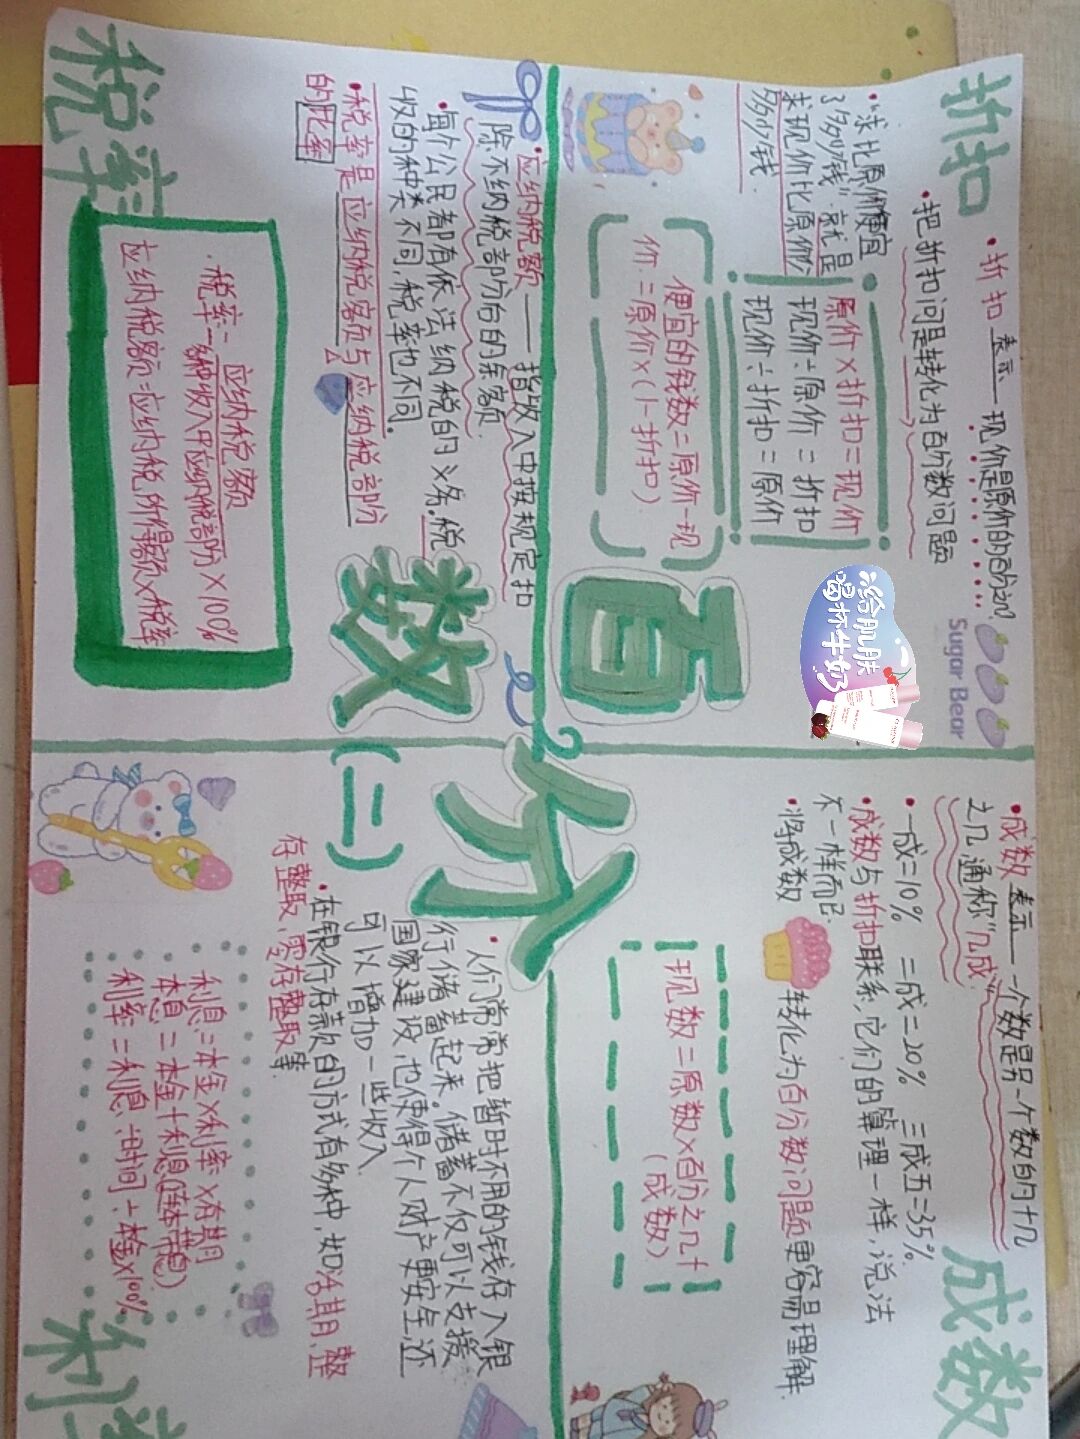 折扣
•折扣表示——现价是原价的百分之几?
•把折扣问题转化为百分数问题
•"求比原价便宜
了多少钱",就是
求现价比原价少
多少钱.
原价×折扣=现价
现价÷原价=折扣
现价÷折扣=原价
便宜的钱数=原价-现
价=原价×(1-折扣)
Sugar Bear
给肌肤
喝杯牛奶
成数
•成数表示——一个数是另一个数的十几
之几,通称"几成"
•一成=10% 二成=20% 三成五=35%
•成数与折扣联系,它们的算理一样,说法
不一样而已.
•将成数 转化为百分数问题更容易理解.
现数=原数×百分之几十
(成数)
百分数(二)
税率
•应纳税额——指收入中按规定扣
除不纳税部分台的余额.
•每个公民都有依法纳税的义务.税
收的种类不同,税率也不同.
•税率是应纳税额与应纳税部分
的比率
•税率=应纳税额
一种收入中应纳税部分×100%
应纳税额=应纳税所得额×税率
•人们常常把暂时不用的钱存入银
行储蓄起来.储蓄不仅可以支援
国家建设,也使得个人财产更安全,还
可以增加一些收入.
•在银行存款的方式有多种,如活期、整
存整取、零存整取等.
利息=本金×利率×存期
本金+利息
利率=利息÷时间÷本金×100%